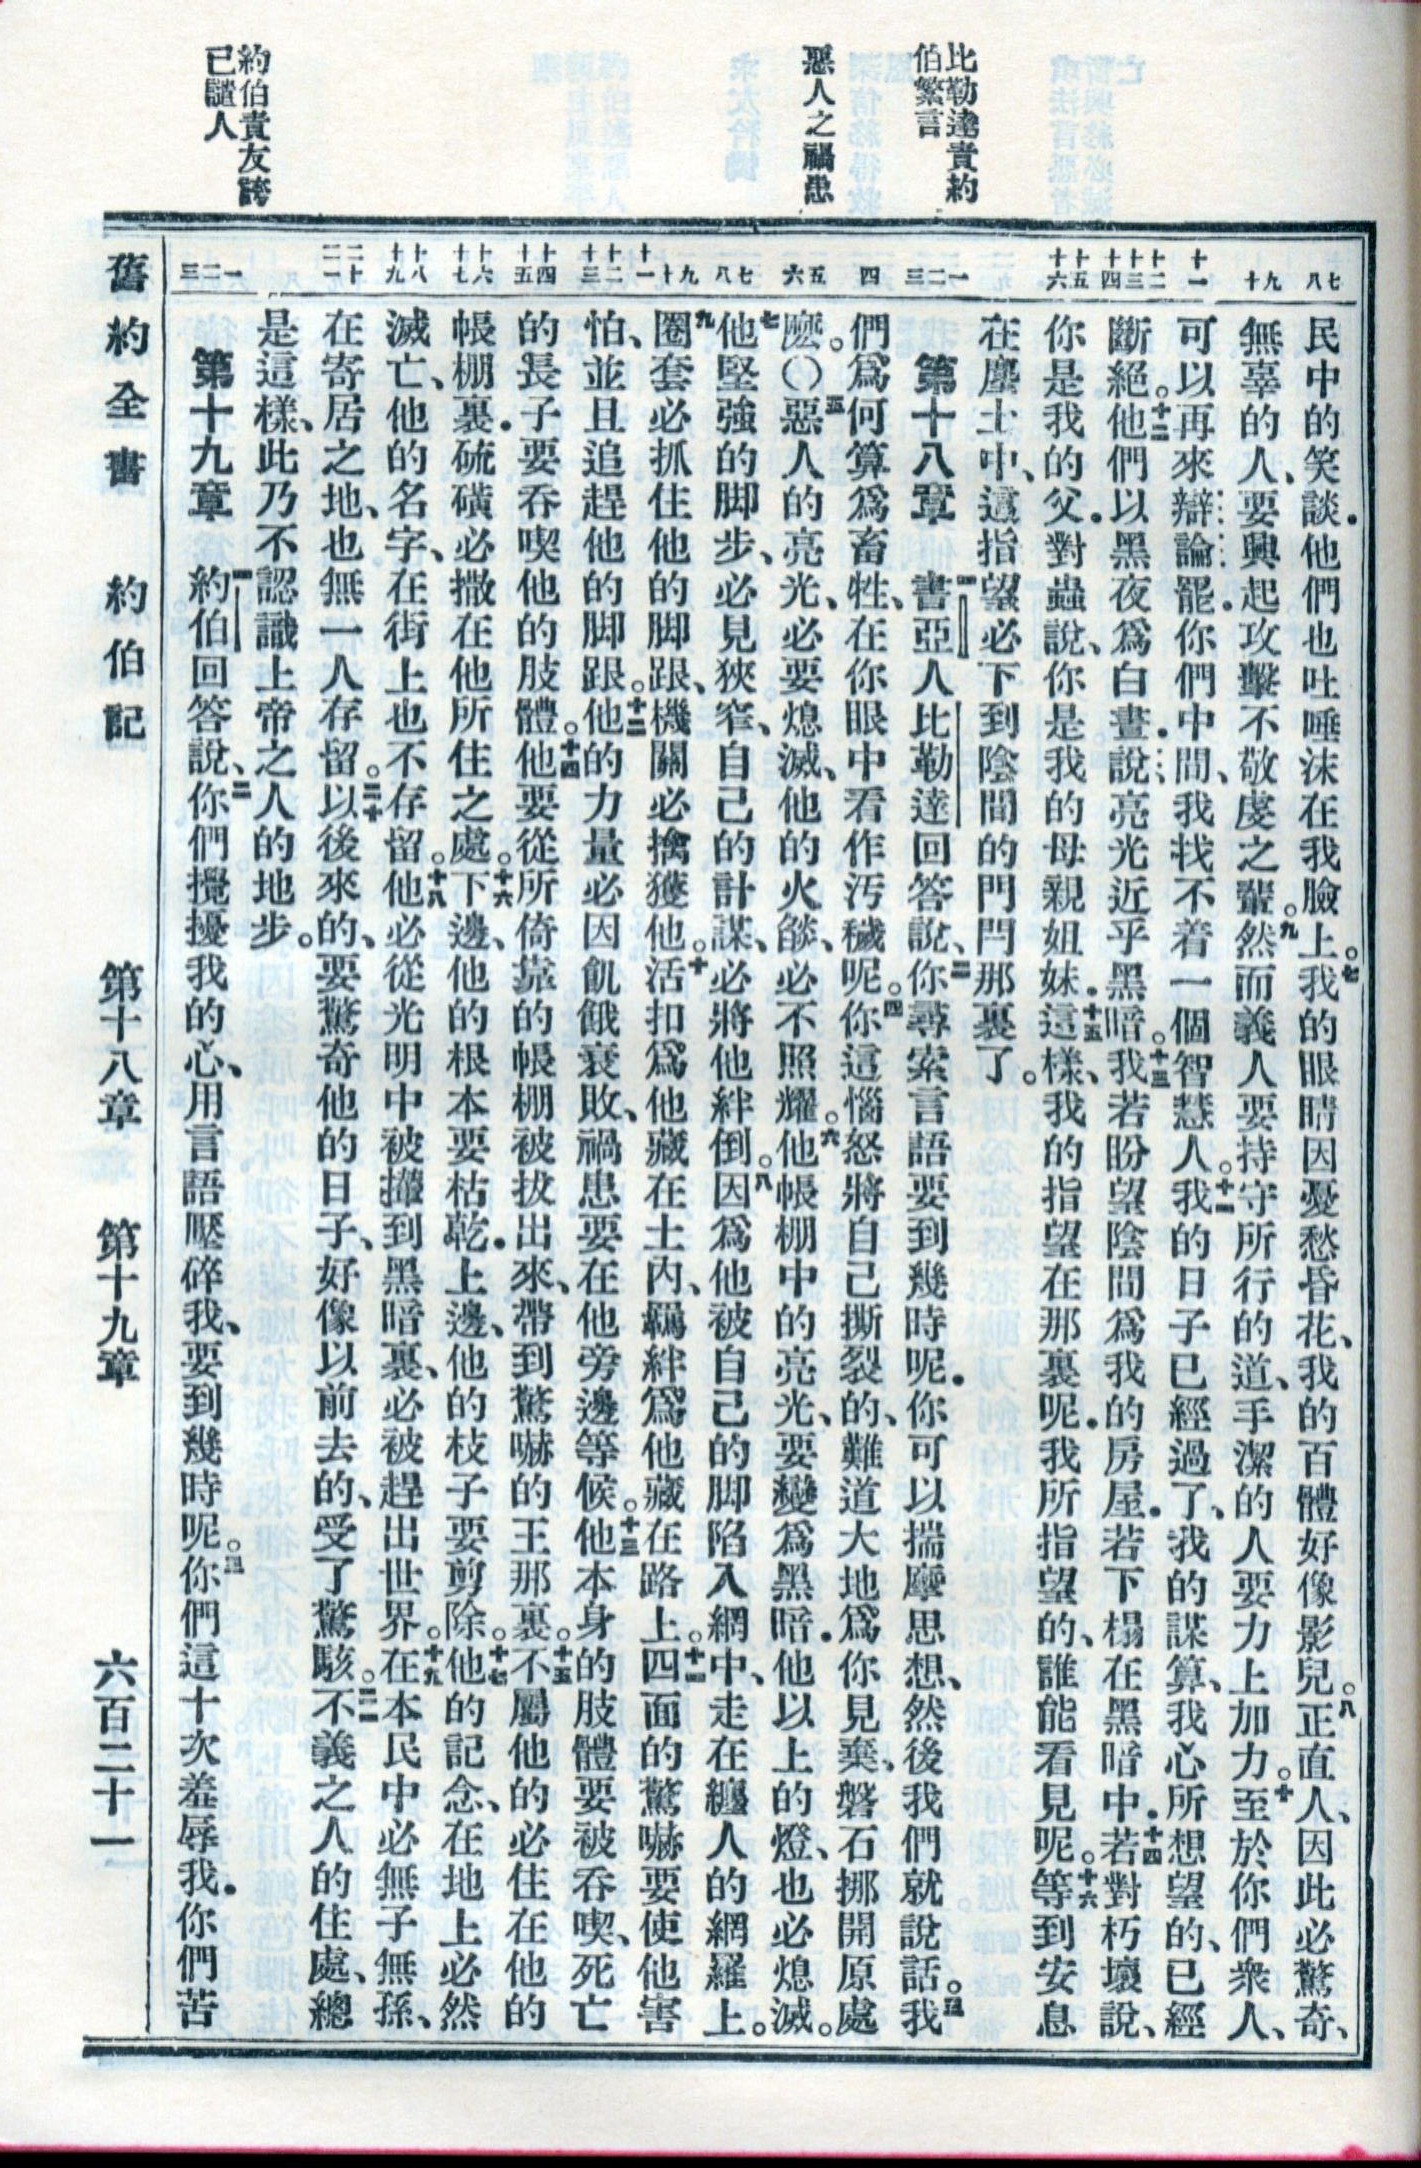 比勒達責約
伯繁言
惡人之禍患
約伯責友誇
己譴人
七八
九十
十一
十二十三十四
十五十六
一二三
四
五六
七八
九十
十一
十二十三
十四十五
十六十七
十八十九
二十二一
一二三
民中的笑談．他們也吐唾沫在我臉上。七我的眼睛因憂愁昏花、我的百體好像影兒。八正直人、因此必驚奇、
無辜的人、要興起攻擊不敬虔之輩。九然而義人要持守所行的道、手潔的人要力上加力。十至於你們衆人、
可以再來辯論罷．你們中間、我找不着一個智慧人。十一我的日子已經過了、我的謀算、我心所想望的、已經
斷絕。十二他們以黑夜爲白晝．說亮光近乎黑暗。十三我若盼望陰間爲我的房屋．若下榻在黑暗中．十四若對朽壞說、
你是我的父．對蟲說、你是我的母親姐妹．十五這樣、我的指望在那裏呢．我所指望的、誰能看見呢。十六等到安息
在塵土中、這指望必下到陰間的門閂那裏了。
第十八章 一書亞人比勒達回答說、二你尋索言語要到幾時呢．你可以揣摩思想、然後我們就說話。三我
們爲何算爲畜牲、在你眼中看作汚穢呢。四你這惱怒將自己撕裂的、難道大地爲你見棄、磐石挪開原處
麽。〇五惡人的亮光、必要熄滅、他的火燄、必不照耀。六他帳棚中的亮光、要變爲黑暗．他以上的燈、也必熄滅。
七他堅強的脚步、必見狹窄、自己的計謀、必將他絆倒。八因爲他被自己的脚陷入網中、走在纏人的網羅上。
九圈套必抓住他的脚跟、機關必擒獲他。十活扣爲他藏在土內、羈絆爲他藏在路上。十一四面的驚嚇要使他害
怕、並且追趕他的脚跟。十二他的力量必因飢餓衰敗、禍患要在他旁邊等候。十三他本身的肢體要被吞喫、死亡
的長子要吞喫他的肢體。十四他要從所倚靠的帳棚被拔出來、帶到驚嚇的王那裏。十五不屬他的必住在他的
帳棚裏．硫磺必撒在他所住之處。十六下邊、他的根本要枯乾．上邊、他的枝子要剪除。十七他的記念、在地上必然
滅亡、他的名字、在街上也不存留。十八他必從光明中被攆到黑暗裏、必被趕出世界。十九在本民中必無子無孫、
在寄居之地、也無一人存留。二十以後來的、要驚奇他的日子、好像以前去的、受了驚駭。二一不義之人的住處、總
是這樣、此乃不認識上帝之人的地步。
第十九章 一約伯回答說、二你們攪擾我的心、用言語壓碎我、要到幾時呢。三你們這十次羞辱我．你們苦
舊約全書 約伯記 第十八章 第十九章 六百二十一